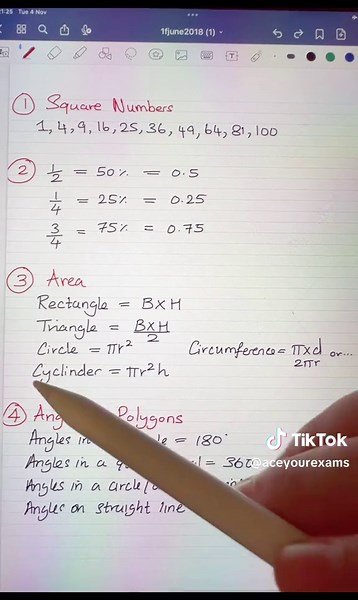 1:28 Tue 4 Nov
1fjune2018 (1)
1 Square Numbers
1, 4, 9, 16, 25, 36, 49, 64, 81, 100
2 1/2 = 50% = 0.5
1/4 = 25% = 0.25
3/4 = 75% = 0.75
3 Area
Rectangle = B×H
Triangle = B×H/2
Circle = πr² Circumference = π×d or...
2πr
Cyclinder = πr²h
4 Polygons
Angles in = 180°
TikTok
Angles in a = 36
@aceyourexams
Angles in a circle/
Angles on straight line